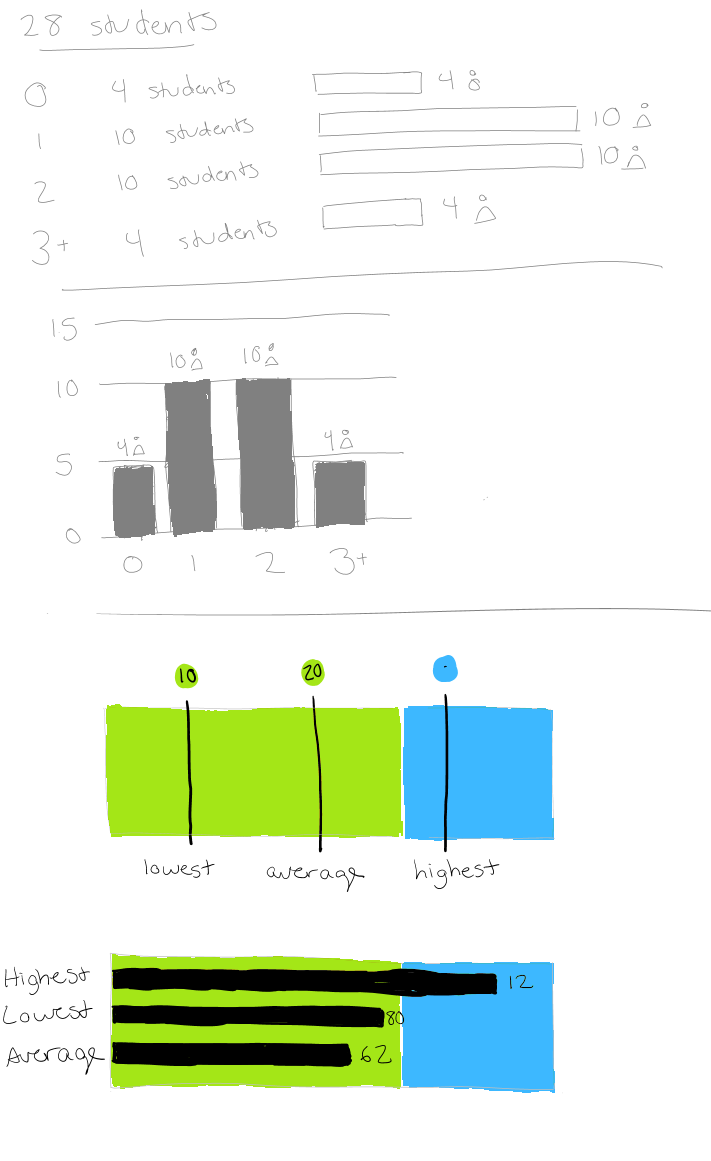 28 students
0 4 students 4
1 10 students 10
2 10 students 10
3+ 4 students 4
15
10 10
10
4 4
5
0
0 1 2 3+
10 20
lowest average highest
Highest 12
Lowest 80
Average 62